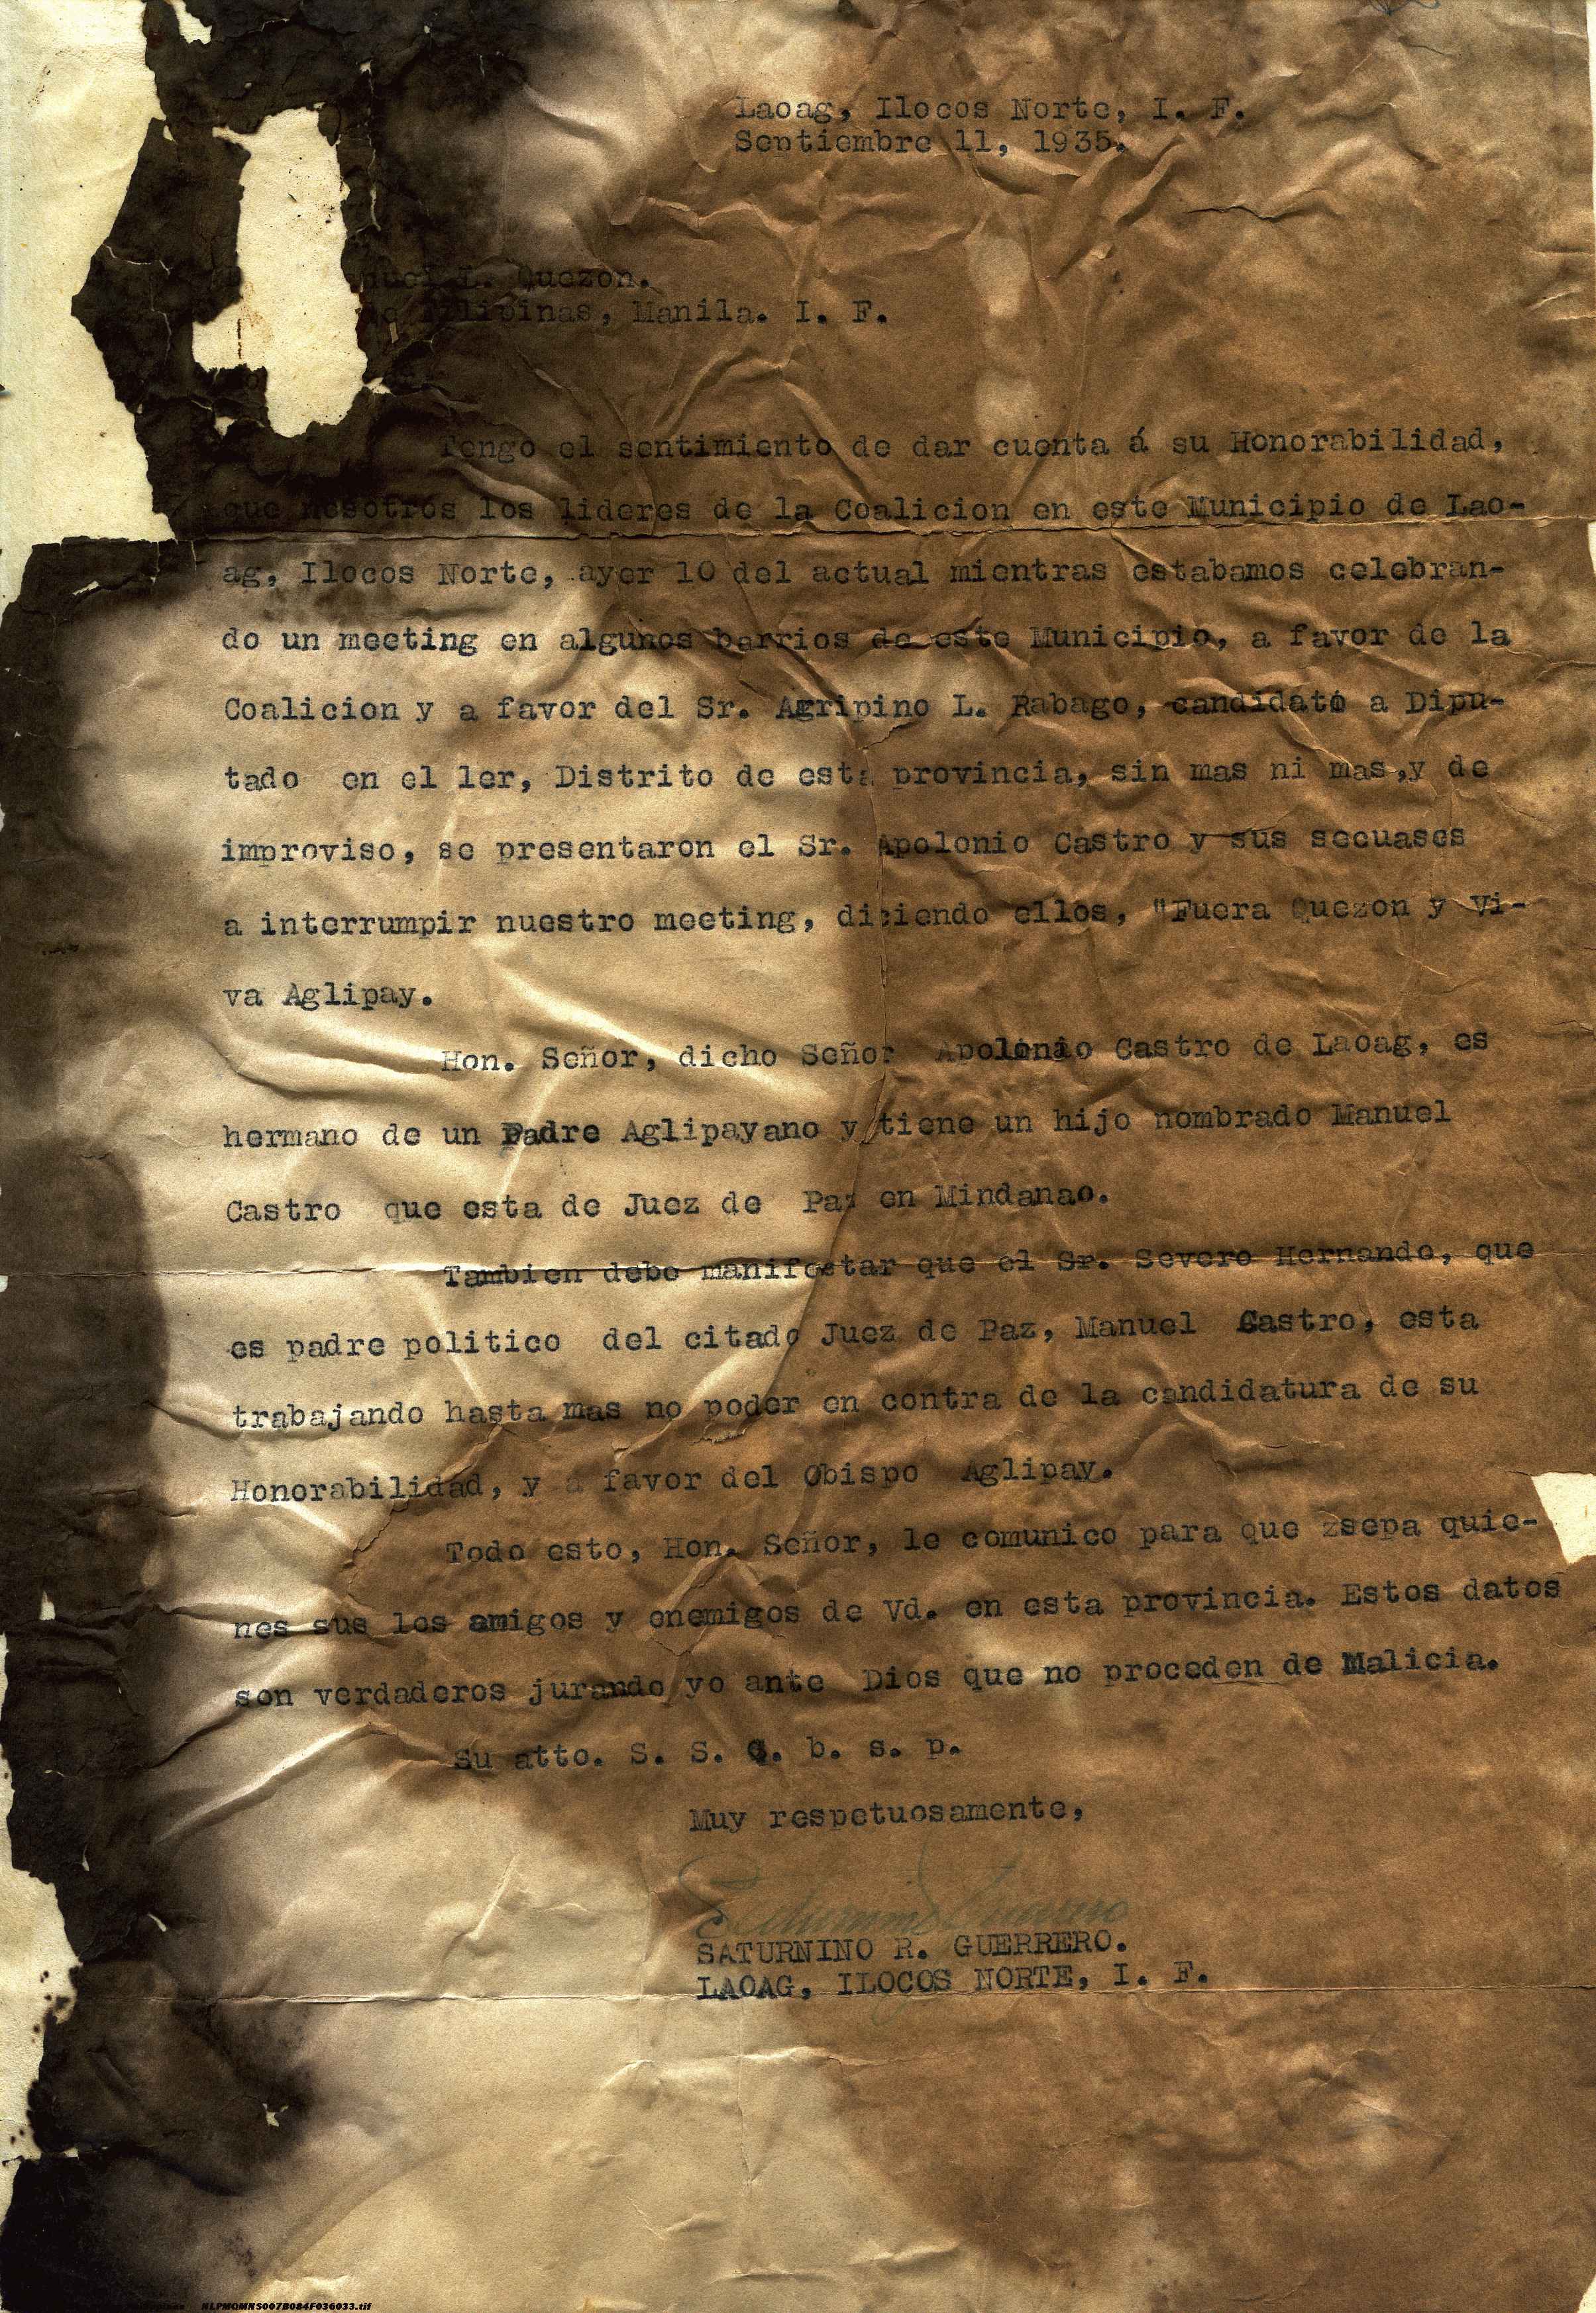 Laoag, Ilocos Norte, I. F.
Septiembre 11, 1935.
nuel L. Quezon.
Filipinas, Manila. I. F.
Tengo el sentimiento de dar cuenta á su Honorabilidad,
que nosotros los lideres de la Coalicion en este Municipio de Lao-
ag, Ilocos Norte, ayer 10 del actual mientras estabamos celebran-
do un meeting en algunos barrios de este Municipio, a favor de la
Coalicion y a favor del Sr. Agripino L. Rabago, candidato a Dipu-
tado en el 1er, Distrito de esta provincia, sin mas ni mas,y de
improviso, se presentaron el Sr. Apolonio Castro y sus secuases
a interrumpir nuestro meeting, diciendo ellos, "Fuera Quezon y Vi-
va Aglipay.
Hon. Señor, dicho Señor Apolonio Castro de Laoag, es
hermano de un Padre Aglipayano y tiene un hijo nombrado Manuel
Castro que esta de Juez de Paz en Mindanao.
Tambien debo manifestar que el Sr. Severo Hernando, que
es padre politico del citado Juez de Paz, Manuel Castro, esta
trabajando hasta mas no poder en contra de la candidatura de su
Honorabilidad, y a favor del Obispo Aglipay.
Todo esto, Hon. Señor, le comunico para que zsepa quie-
nes sus los amigos y enemigos de Vd. en esta provincia. Estos datos
son verdaderos jurando yo ante Dios que no proceden de Malicia.
Su atto. S. S. Q. b. s. p.
Muy respetuosamente,
Saturnino Guerrero
SATURNINO R. GUERRERO.
LAOAG, ILOCOS NORTE, I. F.
NLPMQMNS007B084F036033.tif